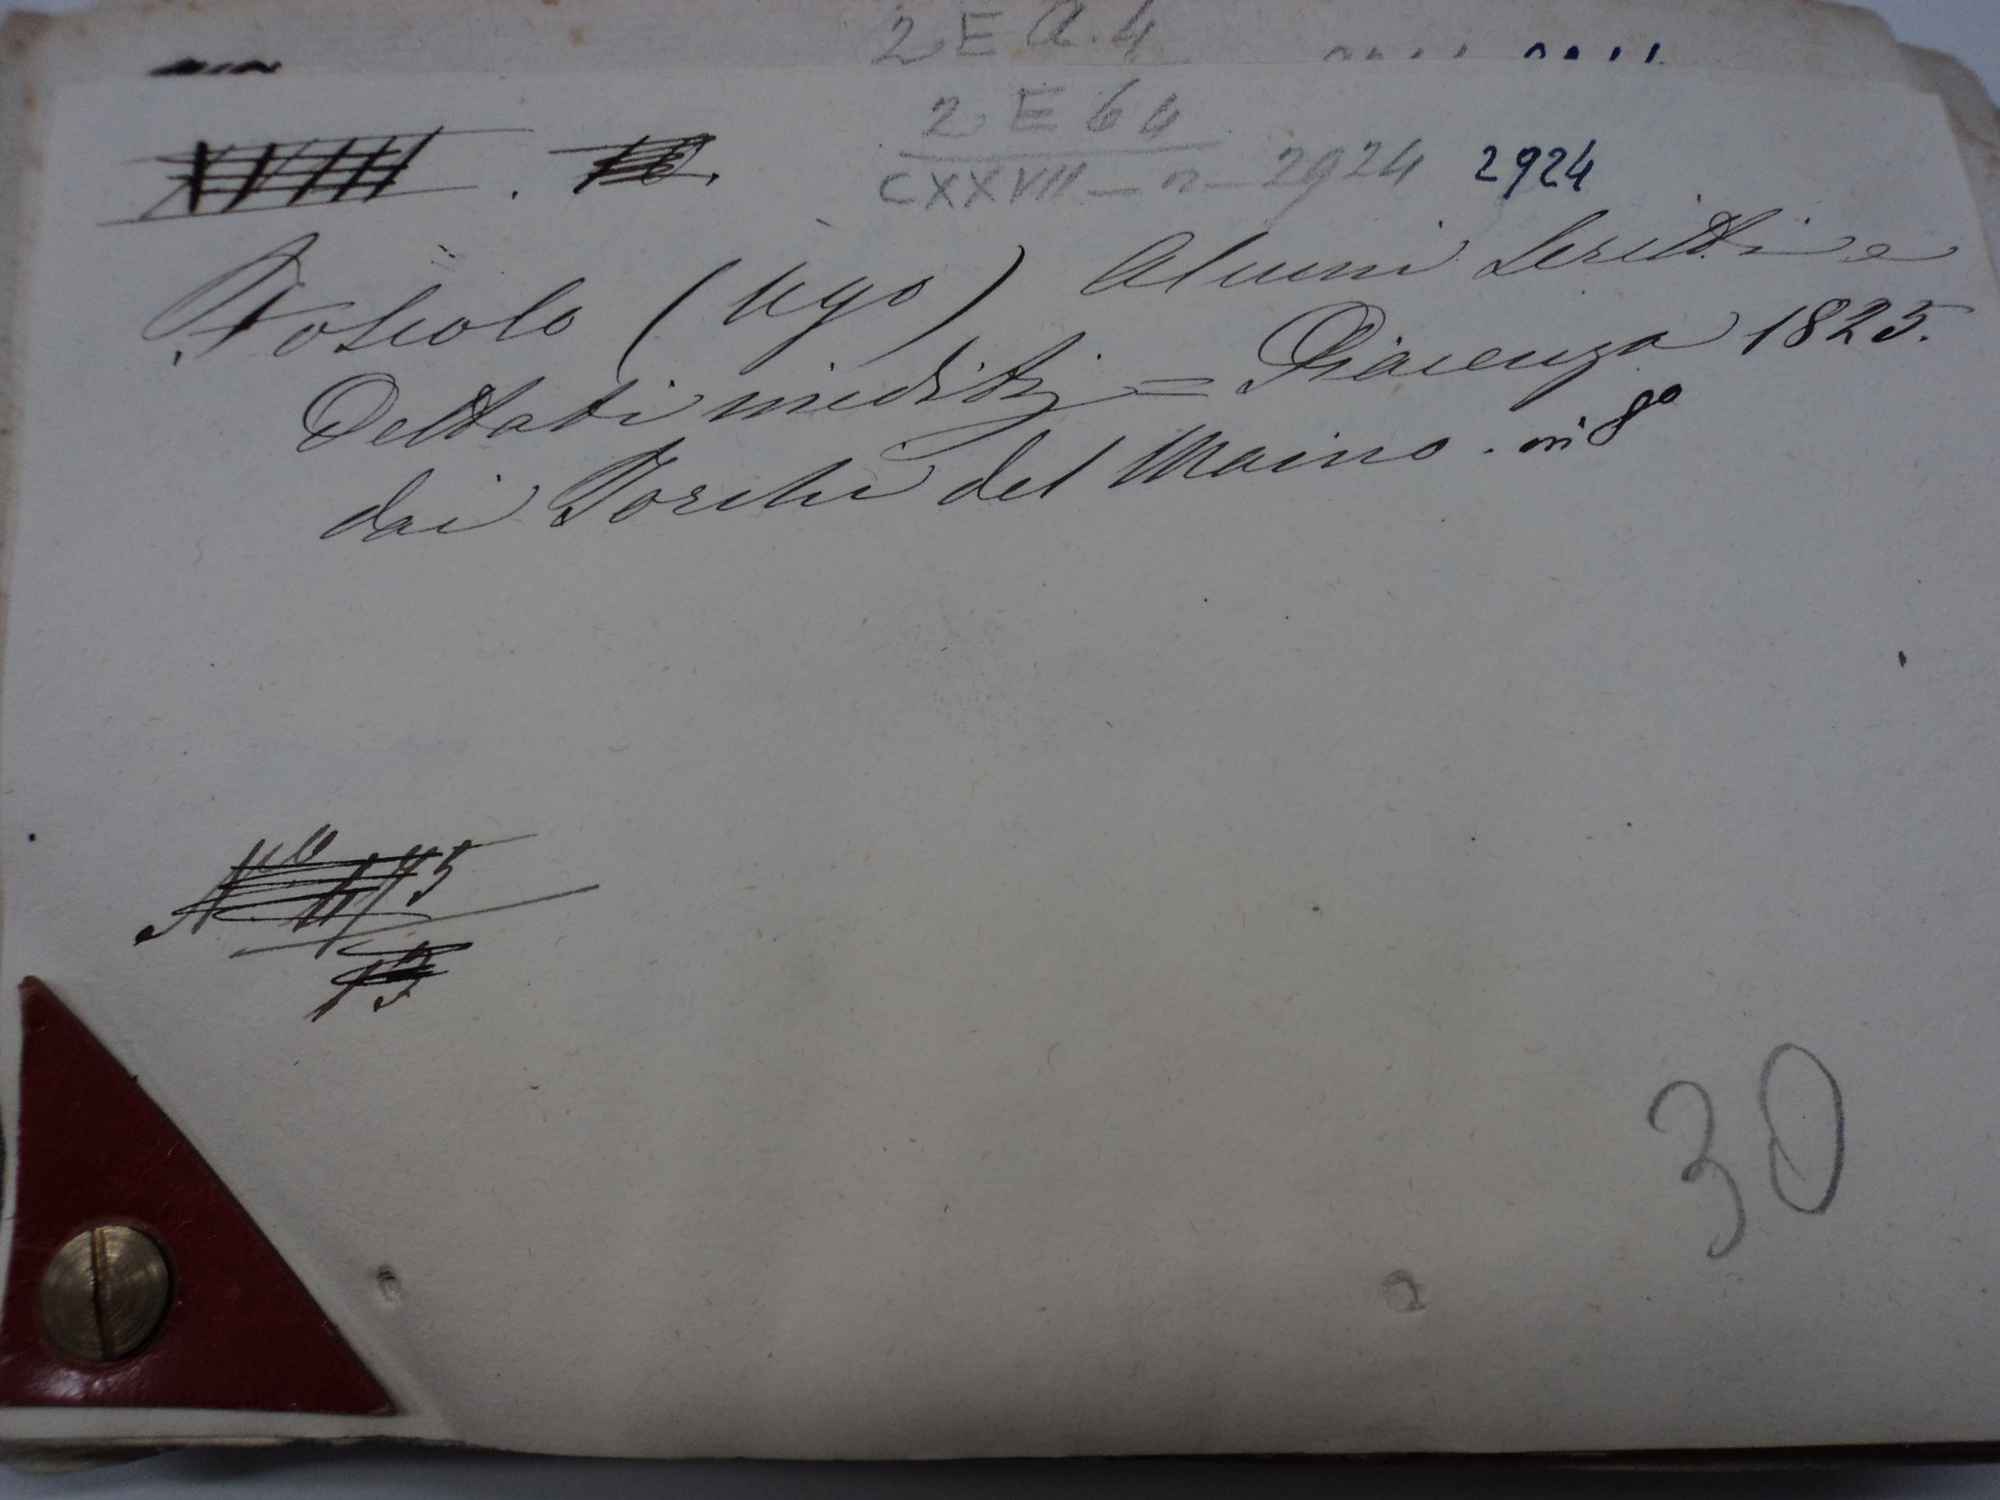 2 E a. 4
2 E 64
XVIII . 10.
CXXVII - n - 2924 2924
Foscolo (Ugo) Alcuni Scritti e
Dettati inediti = Piacenza 1825.
dai Torchi del Maino. in 8º
13
30